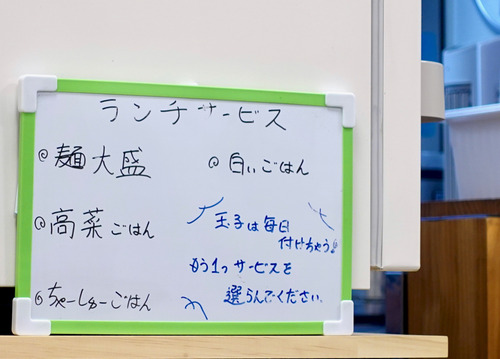 ランチサービス
◎麺大盛 ◎白いごはん
◎高菜ごはん
玉子は毎日
付けちゃう!!
もう1つサービスを
◎ちゃーしゅーごはん
選らんでください。